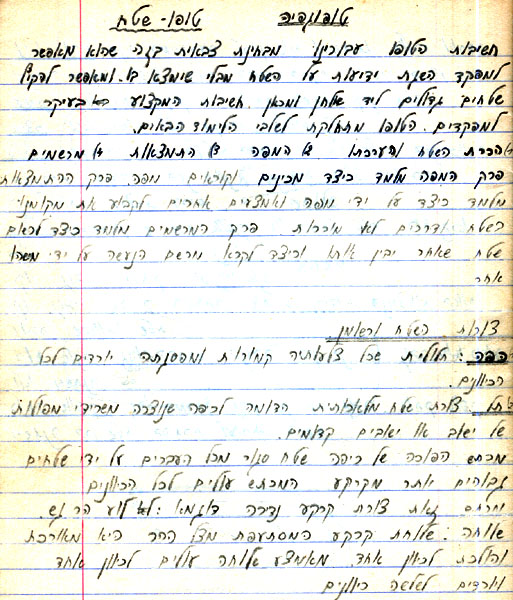 טופוגרפיה טופו - שטח
חשיבות הטופו עבורינו מבחינת צבאית בזה שהוא מאפשר
למפקד השגת ידיעות על השטח מבלי שימצא בו. ומאפשר להקיף
שטחים גדולים ליד שולחן ומכאן. חשיבות המקצוע בעיקר
למפקדים. הטופו מתחלקת לשלבי הלימוד הבאים.
הכרת השטח והערכתו המפה התמצאות מרשמים
פרק המפה מלמד כיצד מכינים וקוראים מפה. פרק ההתמצאות
מלמד כיצד על ידי מפה ואמצעים אחרים לקבוע את מקומנו
השטח ודרכים לא מוכרות פרק המרשמים מלמד כיצד לרשום
שטח שאחר יבין אותו וכיצד לקרא מרשם הנעשה על ידי מישהו
אחר
צורות השטח ורשומן.
כפה: שכל צלעותיה קמורות ומפסגתה יורדים לכל
הכיוונים.
תל צורת שטח מלאכותית הדומה לכיפה שנוצרה משרידי מפולות
של ישוב או ישובים קדומים.
מכתש הפוכה של כיפה שטח סגור מכל העברים על ידי שטחים
גבוהים יותר מקרקע המכתש עולים לכל הכיוונים
זאת צורת קרקע נדירה דוגמא: לוע הר געש.
שלוחה: שלוחת קרקע המסתעפת מצלע ההר היא מאורכת
והולכת לכיוון אחד. מאמצע שלוחה עולים לכיוון אחד
ויורדים לשלשה כיוונים